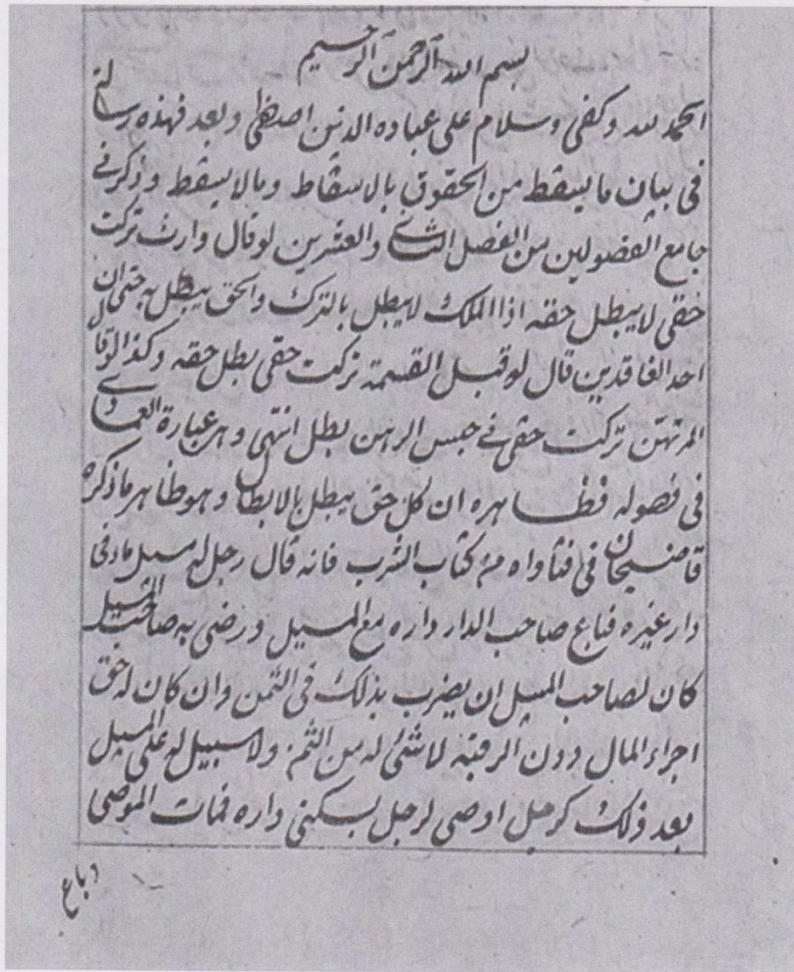 بسم الله الرحمن الرحيم
الحمد لله وكفى وسلام على عباده الذين اصطفى وبعد فهذه رسالة
فى بيان ما يسقط من الحقوق بالاسقاط وما لا يسقط وذكر فى
جامع الفصولين من الفصل الثانى والعشرين لو قال وارث تركت
حقى لا يبطل حقه اذا الملك لا يبطل بالترك والحق يبطل به حتى ان
احد الغاقدين قال لو قبل القسمة تركت حقى بطل حقه وكذا لو قال
المرتهن تركت حقى فى حبس الرهن بطل انتهى وهى عبارة العمادى
فى فصوله فظاهره ان كل حق يبطل بالابطال وهو ظاهر ما ذكره
قاضيخان فى فتاواه من كتاب الشرب فانه قال رجل له مسيل ماء فى
دار غيره فباع صاحب الدار داره مع المسيل ورضى به صاحب المسيل
كان لصاحب المسيل ان يضرب بذلك فى الثمن وان كان له حق
اجراء المال دون الرقبة لا شئ له من الثمن ولا سبيل له على المسيل
بعد ذلك كرجل اوصى لرجل بسكنى داره فمات الموصى
وباع